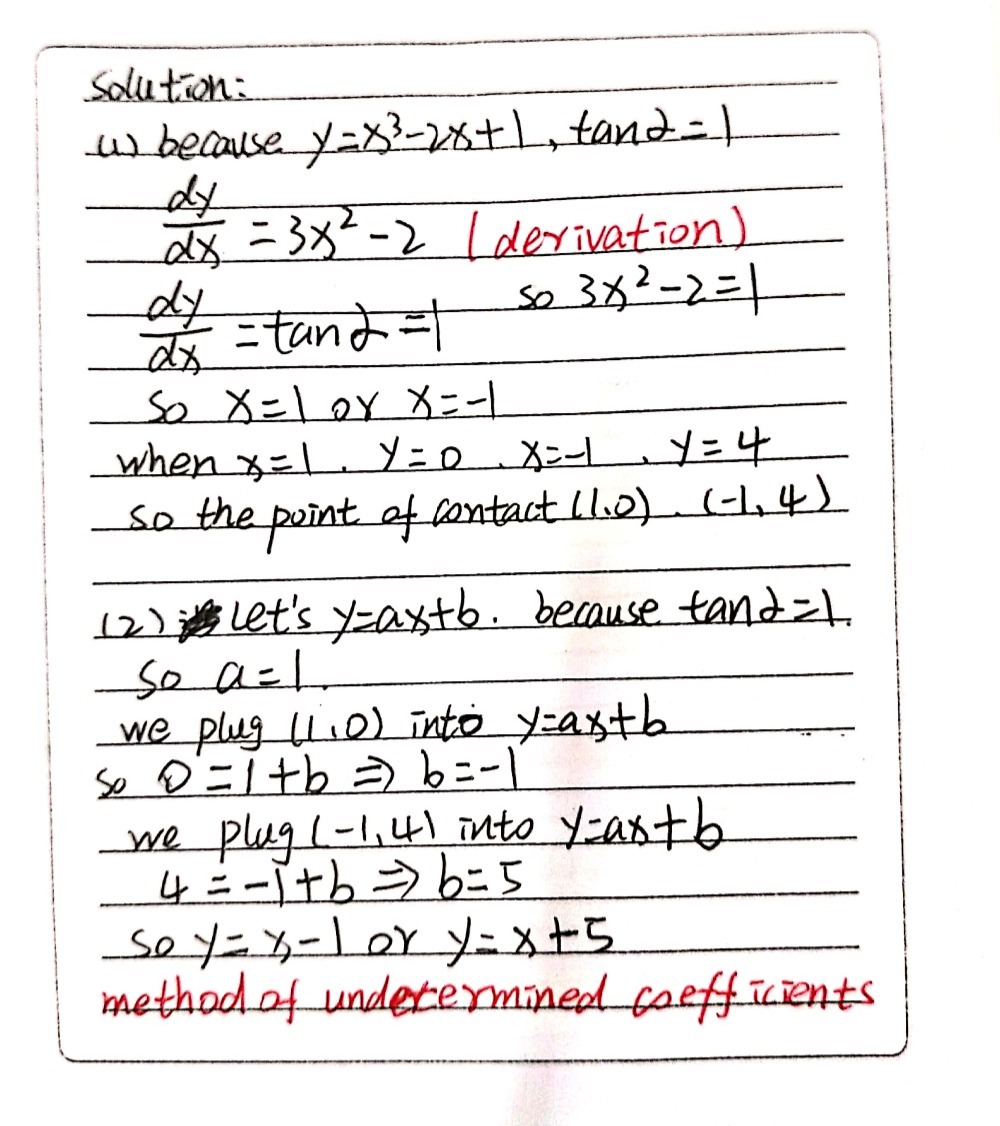 Solution:
(1) because y=x³-2x+1, tanα=1
dy/dx = 3x²-2 (derivation)
dy/dx = tanα = 1 so 3x²-2=1
So x=1 or x=-1
when x=1, y=0, x=-1, y=4
so the point of contact (1,0), (-1,4)
(2) Let's y=ax+b. because tanα=1.
So a=1.
we plug (1,0) into y=ax+b
so 0=1+b ⇒ b=-1
we plug (-1,4) into y=ax+b
4=-1+b ⇒ b=5
so y=x-1 or y=x+5
method of undetermined coefficients